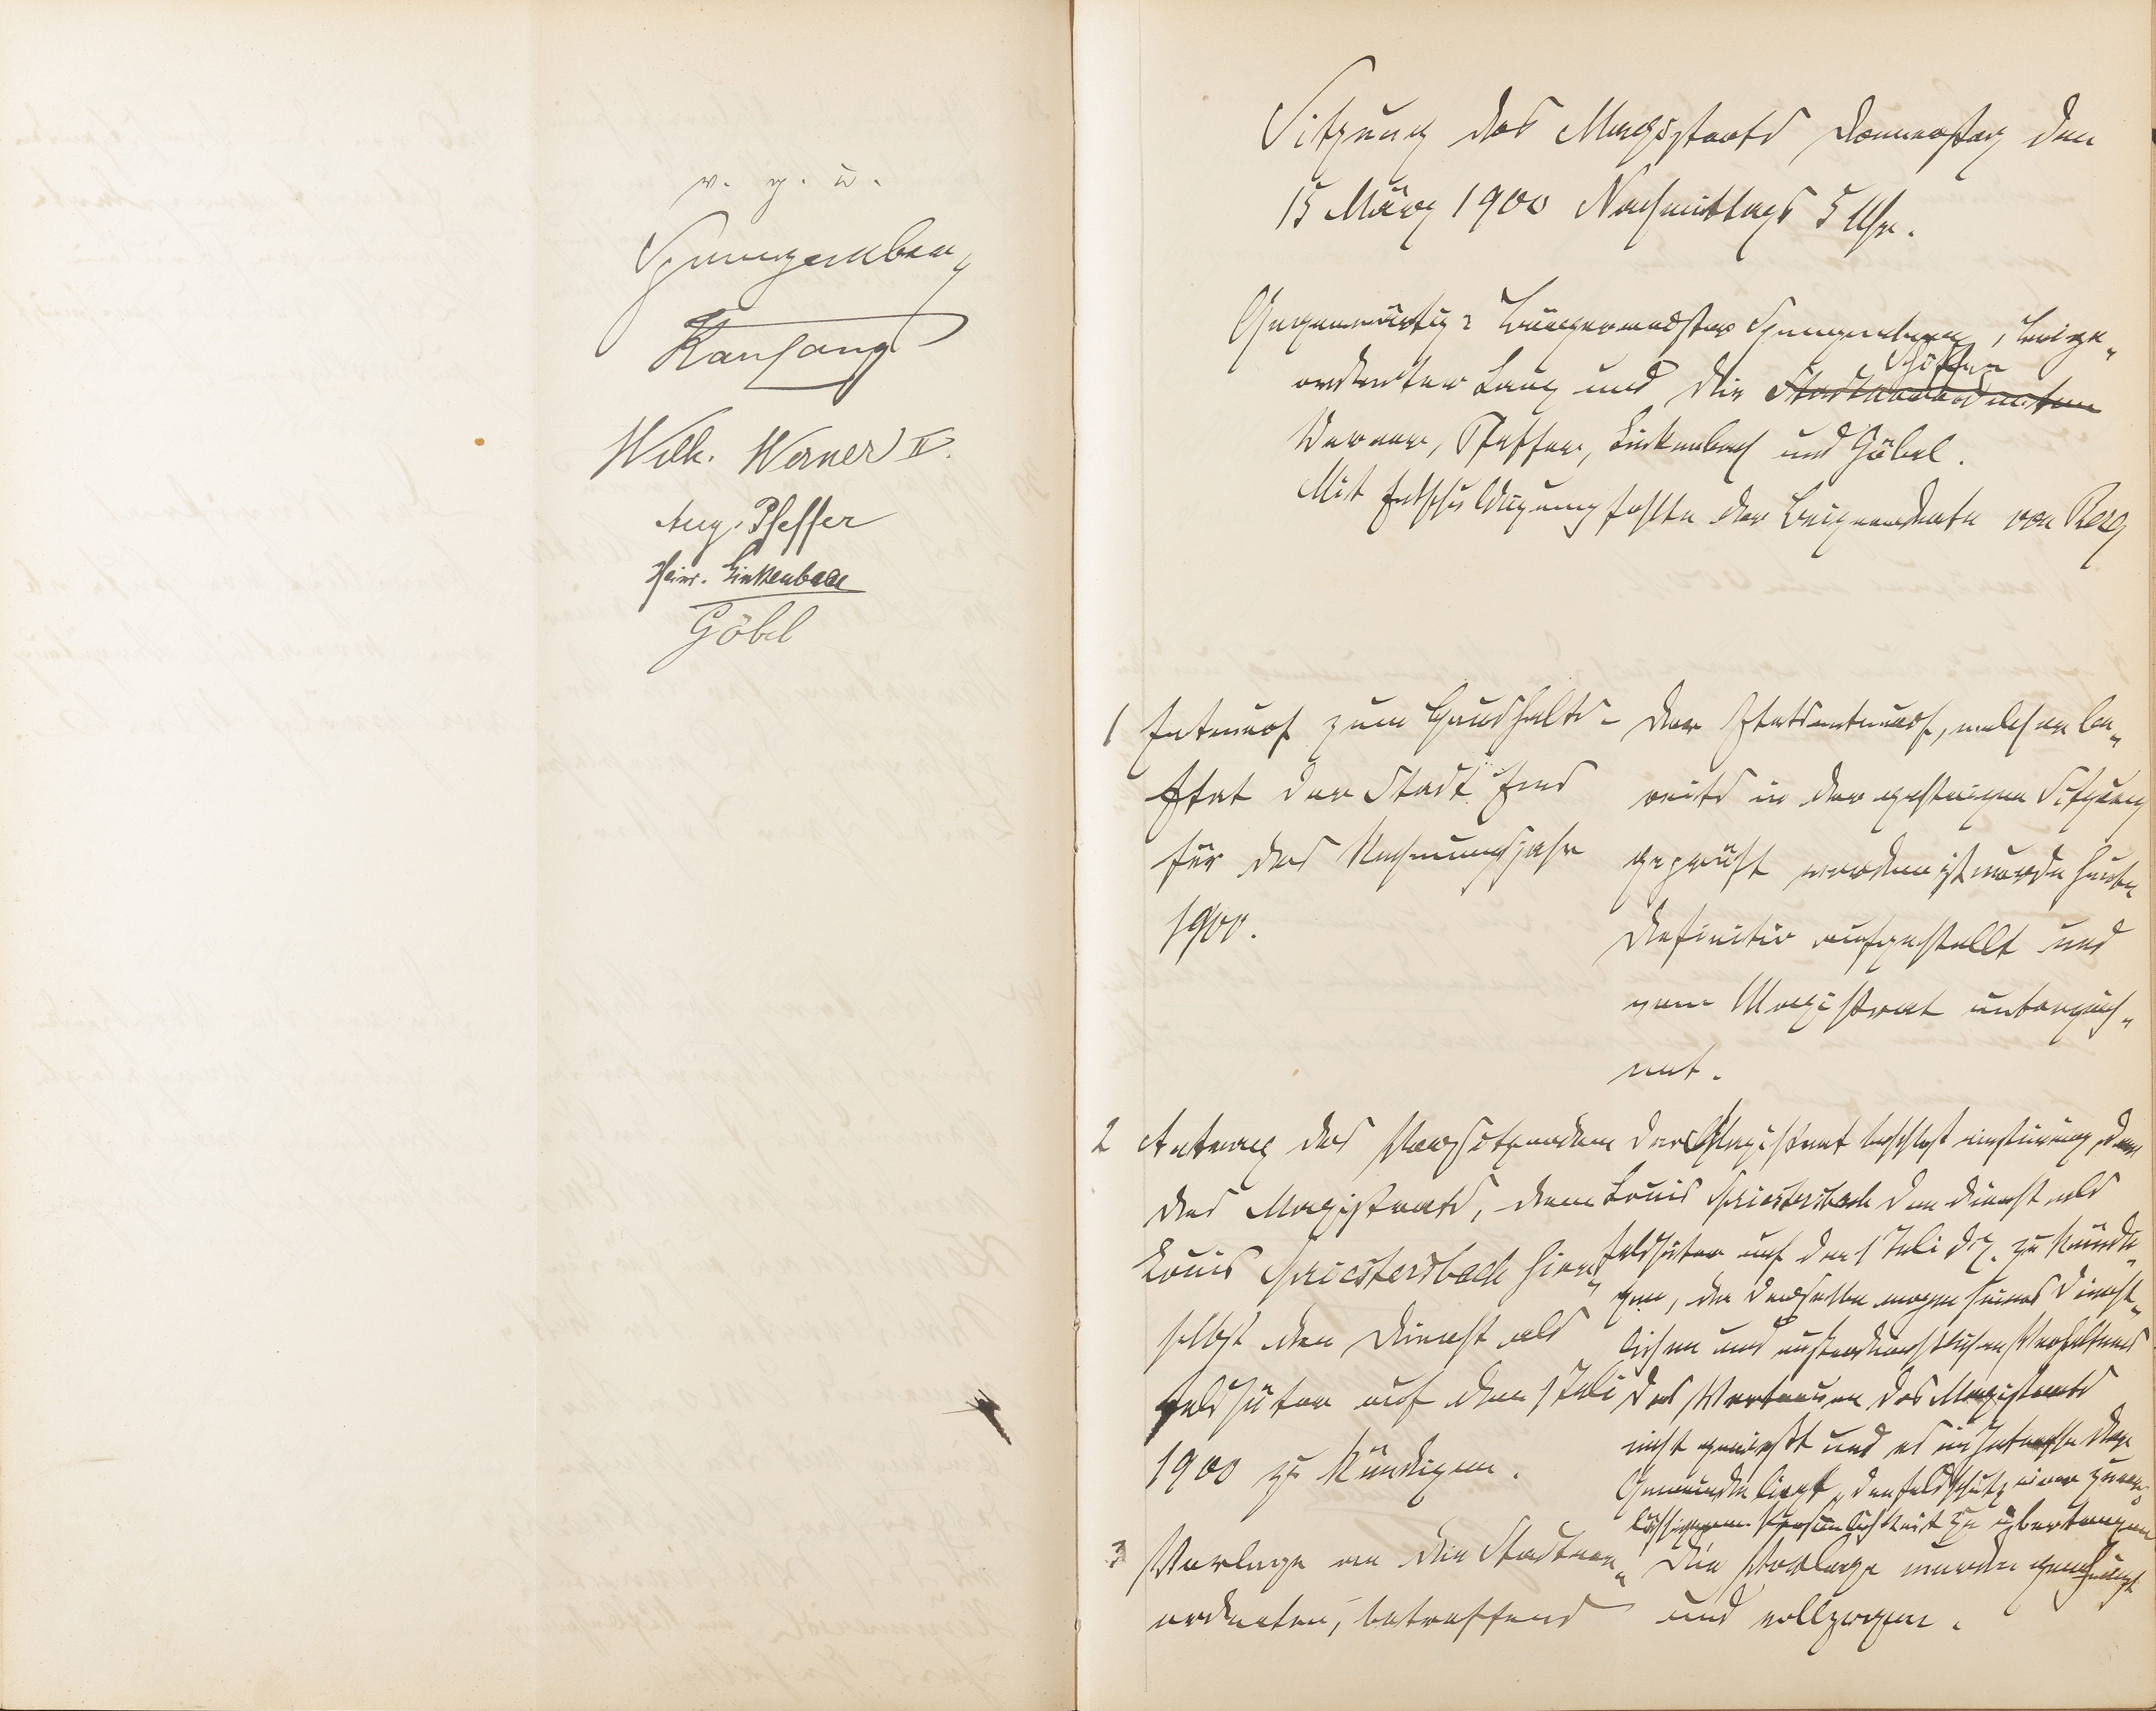 v. g. u.
Spangenberg
Wilh. Werner II.
Aug. Pfeffer
Heinr. Linkenbach
Göbel
Sitzung des Magistrats Donnerstag den
15 März 1900 Nachmittags 5 Uhr.
Gegenwärtig: Bürgermeister Spangenberg, Beige„
ordneter Lang und die Stadtverordneten Schöffen
Werner, Pfeffer, Linkenbach und Göbel.
Mit Entschuldigung fehlte der Beigeordnete von Reeg
1 Entwurf zum Haushalts-
Etat der Stadt Ems
für das Rechnungsjahr
1900.
Der Etatsentwurf, welcher be„
reits in der gestrigen Sitzung
geprüft worden ist wurde heute
definitiv aufgestellt und
vom Magistrat unterzeich„
net.
2 Antrag des Vorsitzenden
des Magistrats, dem
Louis Spriestersbach hier„
selbst den Dienst als
Feldhüter auf den 1 Juli
1900 zu kündigen.
Der Magistrat beschließt einstimmig, dem
Louis Spriestersbach den Dienst als
Feldhüter auf den 1 Juli d. J. zu kündi„
gen, da derselbe wegen seines dienst„
lichen und außerdienstlichen Verhaltens
das Vertrauen des Magistrats
nicht genießt und es im Interesse der
Gemeinde liegt, den Feldschutz einer zuver„
lässigeren Persönlichkeit zu übertragen
3 Vorlage an die Stadtver„
ordneten, betreffend
Die Vorlage wurde genehmigt
und vollzogen.